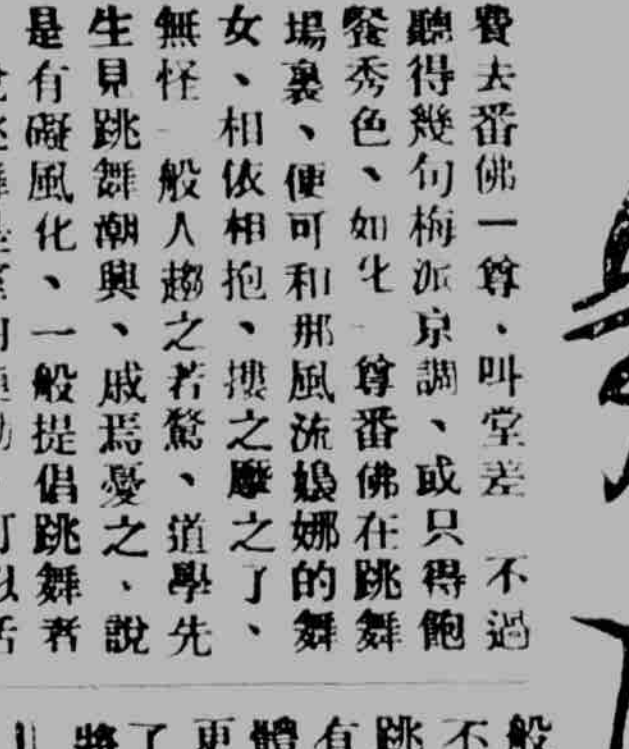 費去番佛一尊、叫堂差 不過
聽得幾句梅派京調、或只得飽
餐秀色、如化一尊番佛在跳舞
場裏、便可和那風流嬝娜的舞
女、相依相抱、摟之摩之了、
無怪一般人趨之若鶩、道學先
生見跳舞潮興、戚焉憂之、說
是有礙風化、一般提倡跳舞者
般不跳有體更了將